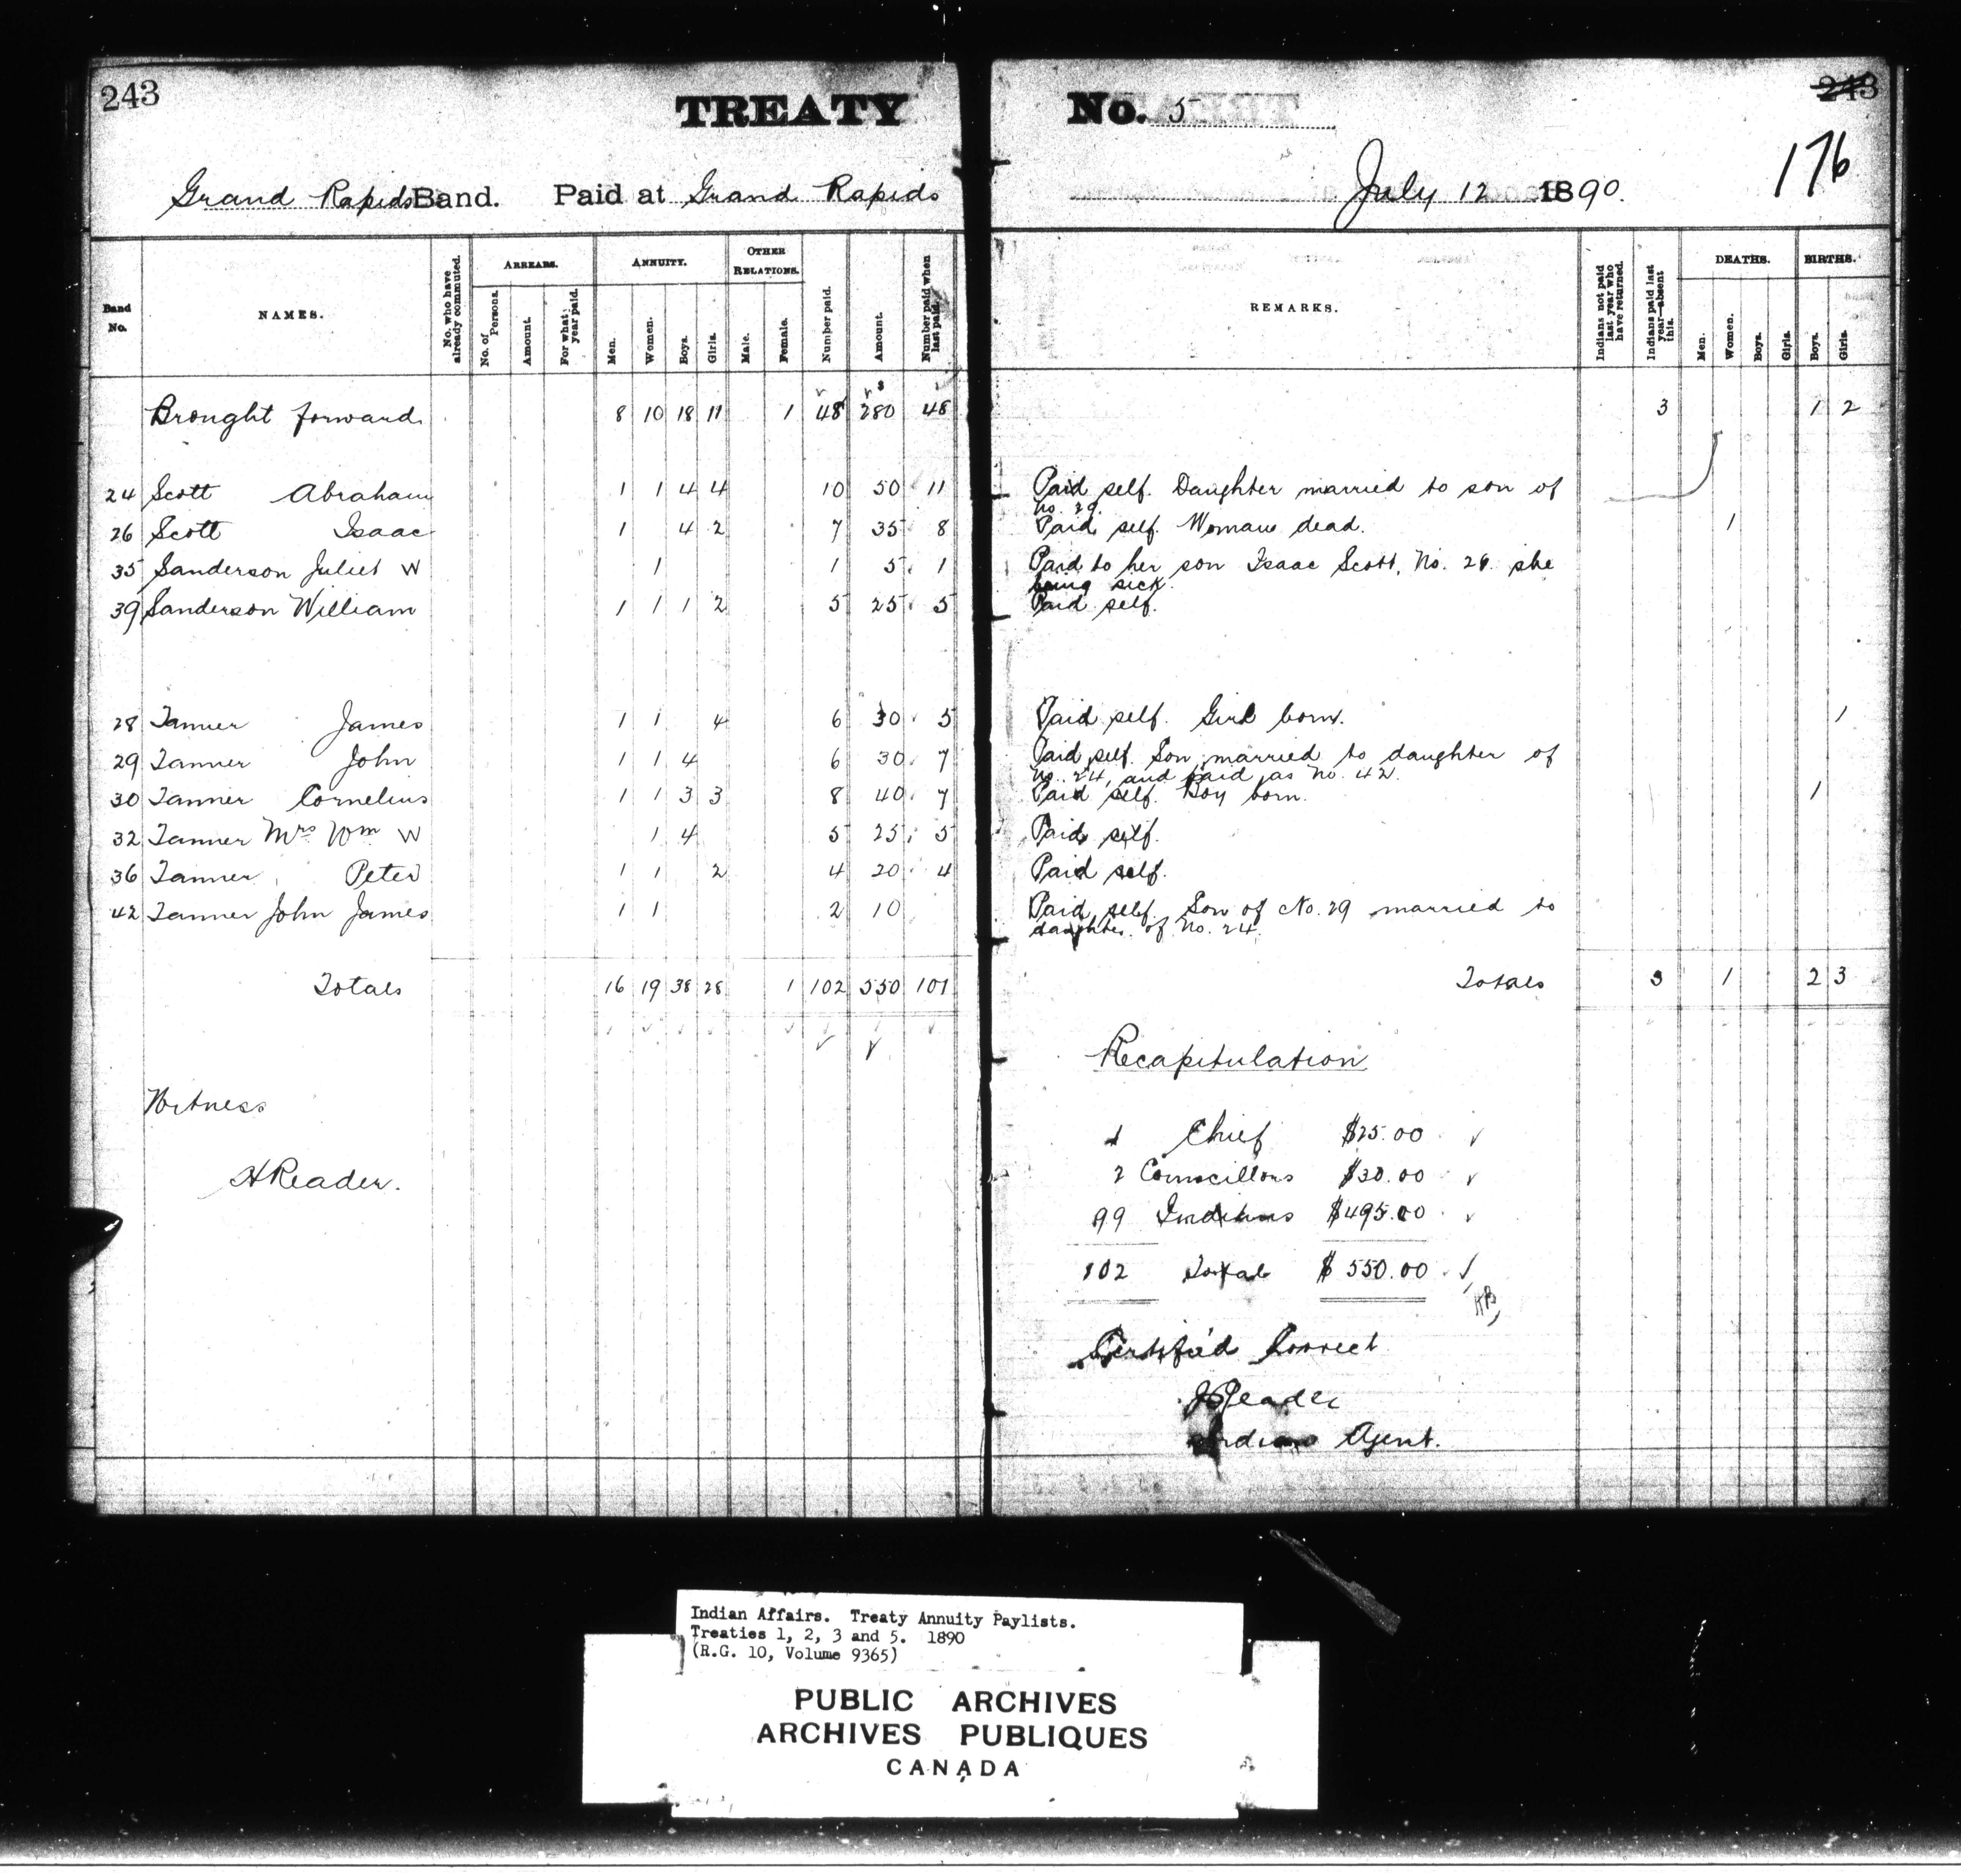 243
TREATY No. 5
243
176
Grand Rapids Band. Paid at Grand Rapids July 12 1890.
Band No.
NAMES.
No. who have already commuted.
ARREARS.
No. of Persons.
Amount.
For what year paid.
ANNUITY.
Men.
Women.
Boys.
Girls.
OTHER RELATIONS.
Male.
Female.
Number paid.
Amount.
Number paid when last paid.
REMARKS.
Indians not paid last year who have returned.
Indians paid last year—absent this.
DEATHS.
Men.
Women.
Boys.
Girls.
BIRTHS.
Boys.
Girls.
Brought forward 8 10 18 11 1 48 280 48 3 1 2
24 Scott Abraham 1 1 4 4 10 50 11 Paid self. Daughter married to son of
No. 29.
26 Scott Isaac 1 4 2 7 35 8 Paid self. Woman dead. 1
35 Sanderson Juliet W 1 1 5 1 Paid to her son Isaac Scott, No. 26. she
being sick.
39 Sanderson William 1 1 1 2 5 25 5 Paid self.
28 Tanner James 1 1 4 6 30 5 Paid self. Girl born. 1
29 Tanner John 1 1 4 6 30 7 Paid self. Son married to daughter of
No. 24, and paid as No. 42.
30 Tanner Cornelius 1 1 3 3 8 40 7 Paid self. Boy born. 1
32 Tanner Mrs Wm W 1 4 5 25 5 Paid self.
36 Tanner Peter 1 1 2 4 20 4 Paid self.
42 Tanner John James 1 1 2 10 Paid self. Son of No. 29 married to
daughter of No. 24.
Totals 16 19 38 28 1 102 550 101 Totals 3 1 2 3
Recapitulation
Witness
1 Chief $25.00
2 Councillors $30.00
H Reader.
99 Indians $495.00
102 Total $550.00
Certified Correct
J Reader
Indian Agent.
Indian Affairs. Treaty Annuity Paylists.
Treaties 1, 2, 3 and 5. 1890
(R.G. 10, Volume 9365)
PUBLIC ARCHIVES
ARCHIVES PUBLIQUES
CANADA